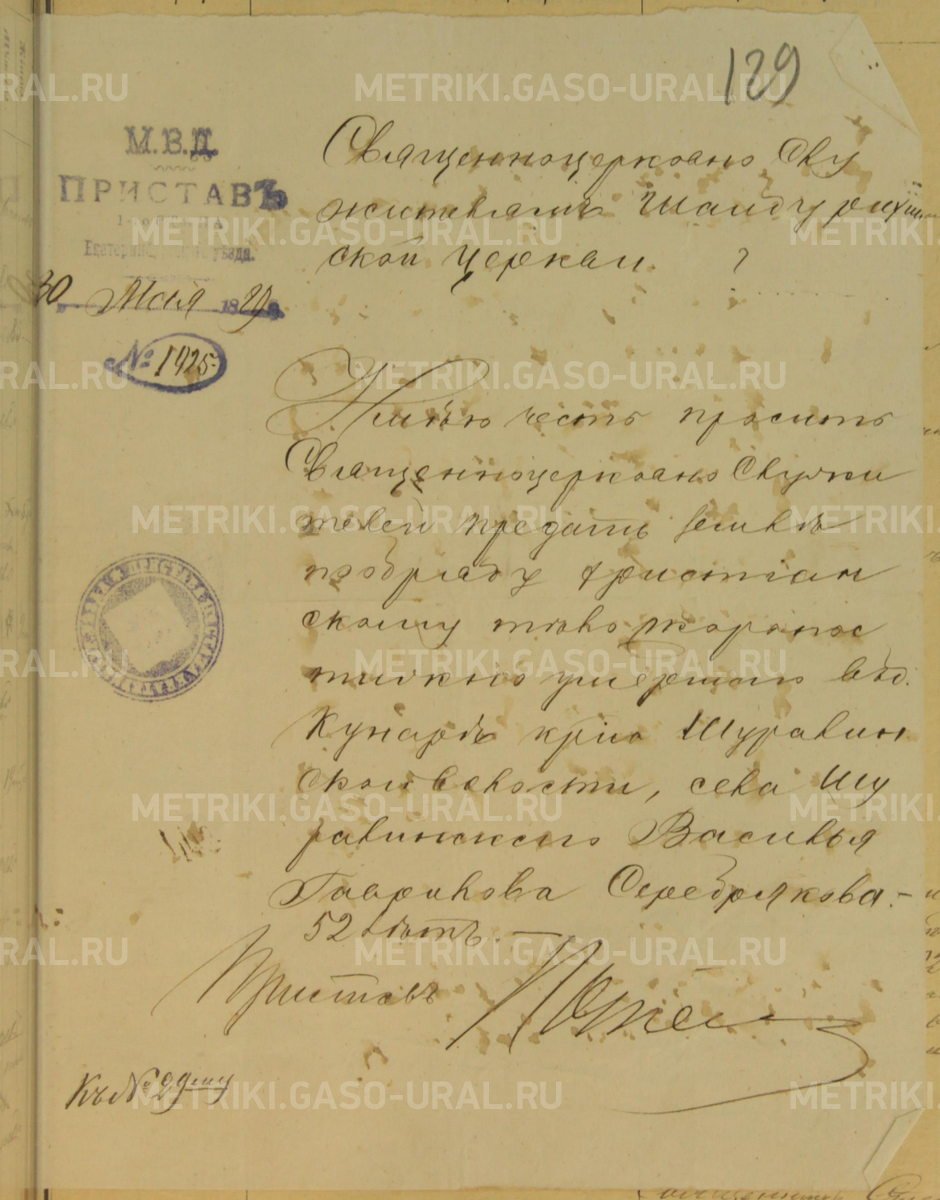 129
М.В.Д.
ПРИСТАВЪ
уѣзда.
30 Мая 1899
№ 1425
Священноцерковно Слу
жителямъ Шайдурихин
ской церкви.
Имѣю честь просить
Священноцерковно Служи
телей предать землѣ
по обряду христіан
скому тѣло скоропос
тижно умершаго въ д.
Кунарѣ кр-на Шуралин
ской волости, села Шу
ралинскаго Василья
Гаврилова Серебрякова.-
52 лѣтъ. -
Приставъ
Къ № 29му
METRIKI.GASO-URAL.RU